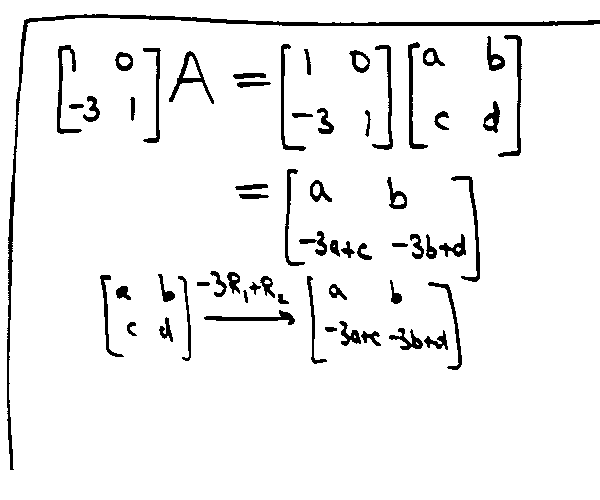 [1 0; -3 1] A = [1 0; -3 1] [a b; c d]
= [a b; -3a+c -3b+d]
[a b; c d] -3R₁+R₂ → [a b; -3a+c -3b+d]